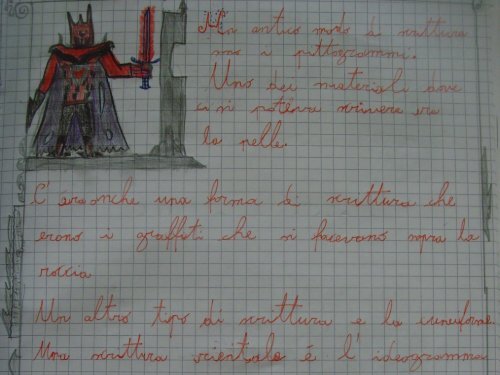 Un antico modo di scrittura
sono i pittogrammi.
Uno dei materiali dove
ci si poteva scrivere era
la pelle.
C'era anche una forma di scrittura che
erano i graffiti che si facevano sopra la
roccia
Un altro tipo di scrittura e la cuneiforme.
Una scrittura orientale é l'ideogramma